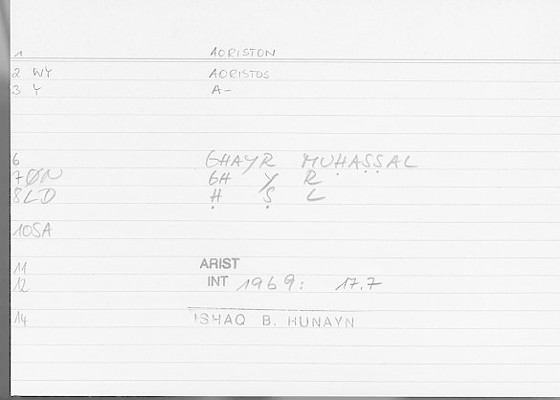 1 AORISTON
2 WY AORISTOS
3 Y A-
6 GHAYR MUḤAṢṢAL
7 ØN GH Y R
8 LD Ḥ Ṣ L
10 SA
11 ARIST
12 INT 1969: 17.7
14 ISHAQ B. HUNAYN